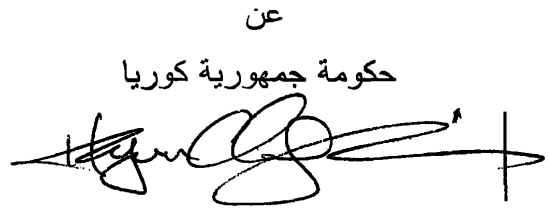 عن
حكومة جمهورية كوريا